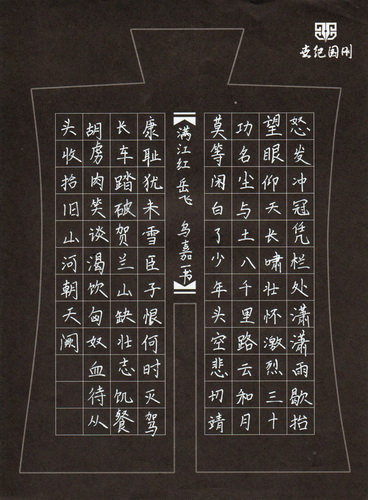 世纪国刊
怒发冲冠凭栏处潇潇雨歇抬
望眼仰天长啸壮怀激烈三十
功名尘与土八千里路云和月
莫等闲白了少年头空悲切靖
满江红 岳飞 乌嘉一书
康耻犹未雪臣子恨何时灭驾
长车踏破贺兰山缺壮志饥餐
胡虏肉笑谈渴饮匈奴血待从
头收拾旧山河朝天阙